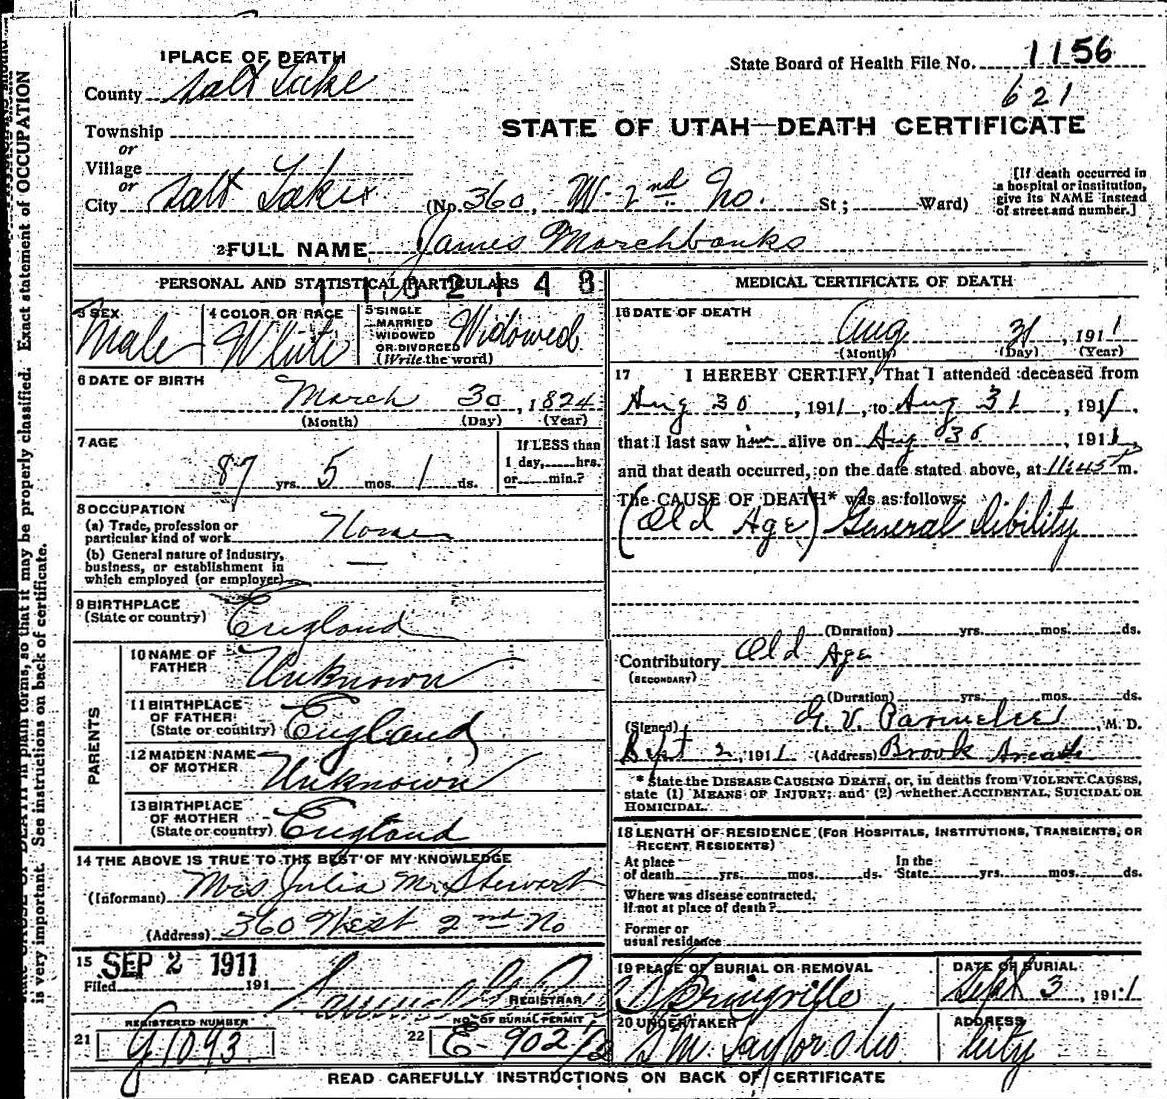 1 PLACE OF DEATH
State Board of Health File No. 1156
621
County Salt Lake
STATE OF UTAH—DEATH CERTIFICATE
Township
or
Village
or
City Salt Lake (No. 360, W. 2nd No. St; Ward)
[If death occurred in a hospital or institution, give its NAME instead of street and number.]
2 FULL NAME James Marchbanks
PERSONAL AND STATISTICAL PARTICULARS
3 SEX Male
4 COLOR OR RACE White
5 SINGLE MARRIED WIDOWED OR DIVORCED (Write the word) Widowed
6 DATE OF BIRTH
March 30, 1824
(Month) (Day) (Year)
7 AGE
87 yrs. 5 mos. 1 ds.
If LESS than 1 day, hrs. or min.?
8 OCCUPATION
(a) Trade, profession or particular kind of work None
(b) General nature of industry, business, or establishment in which employed (or employer) —
9 BIRTHPLACE
(State or country) England
PARENTS
10 NAME OF FATHER Unknown
11 BIRTHPLACE OF FATHER
(State or country) England
12 MAIDEN NAME OF MOTHER Unknown
13 BIRTHPLACE OF MOTHER
(State or country) England
14 THE ABOVE IS TRUE TO THE BEST OF MY KNOWLEDGE
(Informant) Mrs Julia M. Stewart
(Address) 360 West 2nd No
15 SEP 2 1911
Filed 191
REGISTRAR
REGISTERED NUMBER
21 G1093
NO. OF BURIAL PERMIT
22 E-902 1/2
MEDICAL CERTIFICATE OF DEATH
16 DATE OF DEATH
Aug 31, 1911
(Month) (Day) (Year)
17 I HEREBY CERTIFY, That I attended deceased from
Aug 30, 1911, to Aug 31, 1911.
that I last saw him alive on Aug 30, 1911,
and that death occurred, on the date stated above, at 11:45 P m.
The CAUSE OF DEATH* was as follows:
(Old Age) General Dibility
(Duration) yrs. mos. ds.
Contributory Old Age
(SECONDARY)
(Duration) yrs. mos. ds.
(Signed) G. V. Parmelee, M. D.
Sept 2, 1911 (Address) Brook Arcade
* State the DISEASE CAUSING DEATH, or, in deaths from VIOLENT CAUSES, state (1) MEANS OF INJURY; and (2) whether ACCIDENTAL, SUICIDAL OR HOMICIDAL.
18 LENGTH OF RESIDENCE (FOR HOSPITALS, INSTITUTIONS, TRANSIENTS, OR RECENT RESIDENTS)
At place of death yrs. mos. ds. In the State yrs. mos. ds.
Where was disease contracted, If not at place of death?
Former or usual residence
19 PLACE OF BURIAL OR REMOVAL
Springville
DATE OF BURIAL
Sept 3, 1911
20 UNDERTAKER
S. M. Taylor & Co
ADDRESS
City
READ CAREFULLY INSTRUCTIONS ON BACK OF CERTIFICATE
in plain terms, so that it may be properly classified. Exact statement of OCCUPATION
is very important. See instructions on back of certificate.